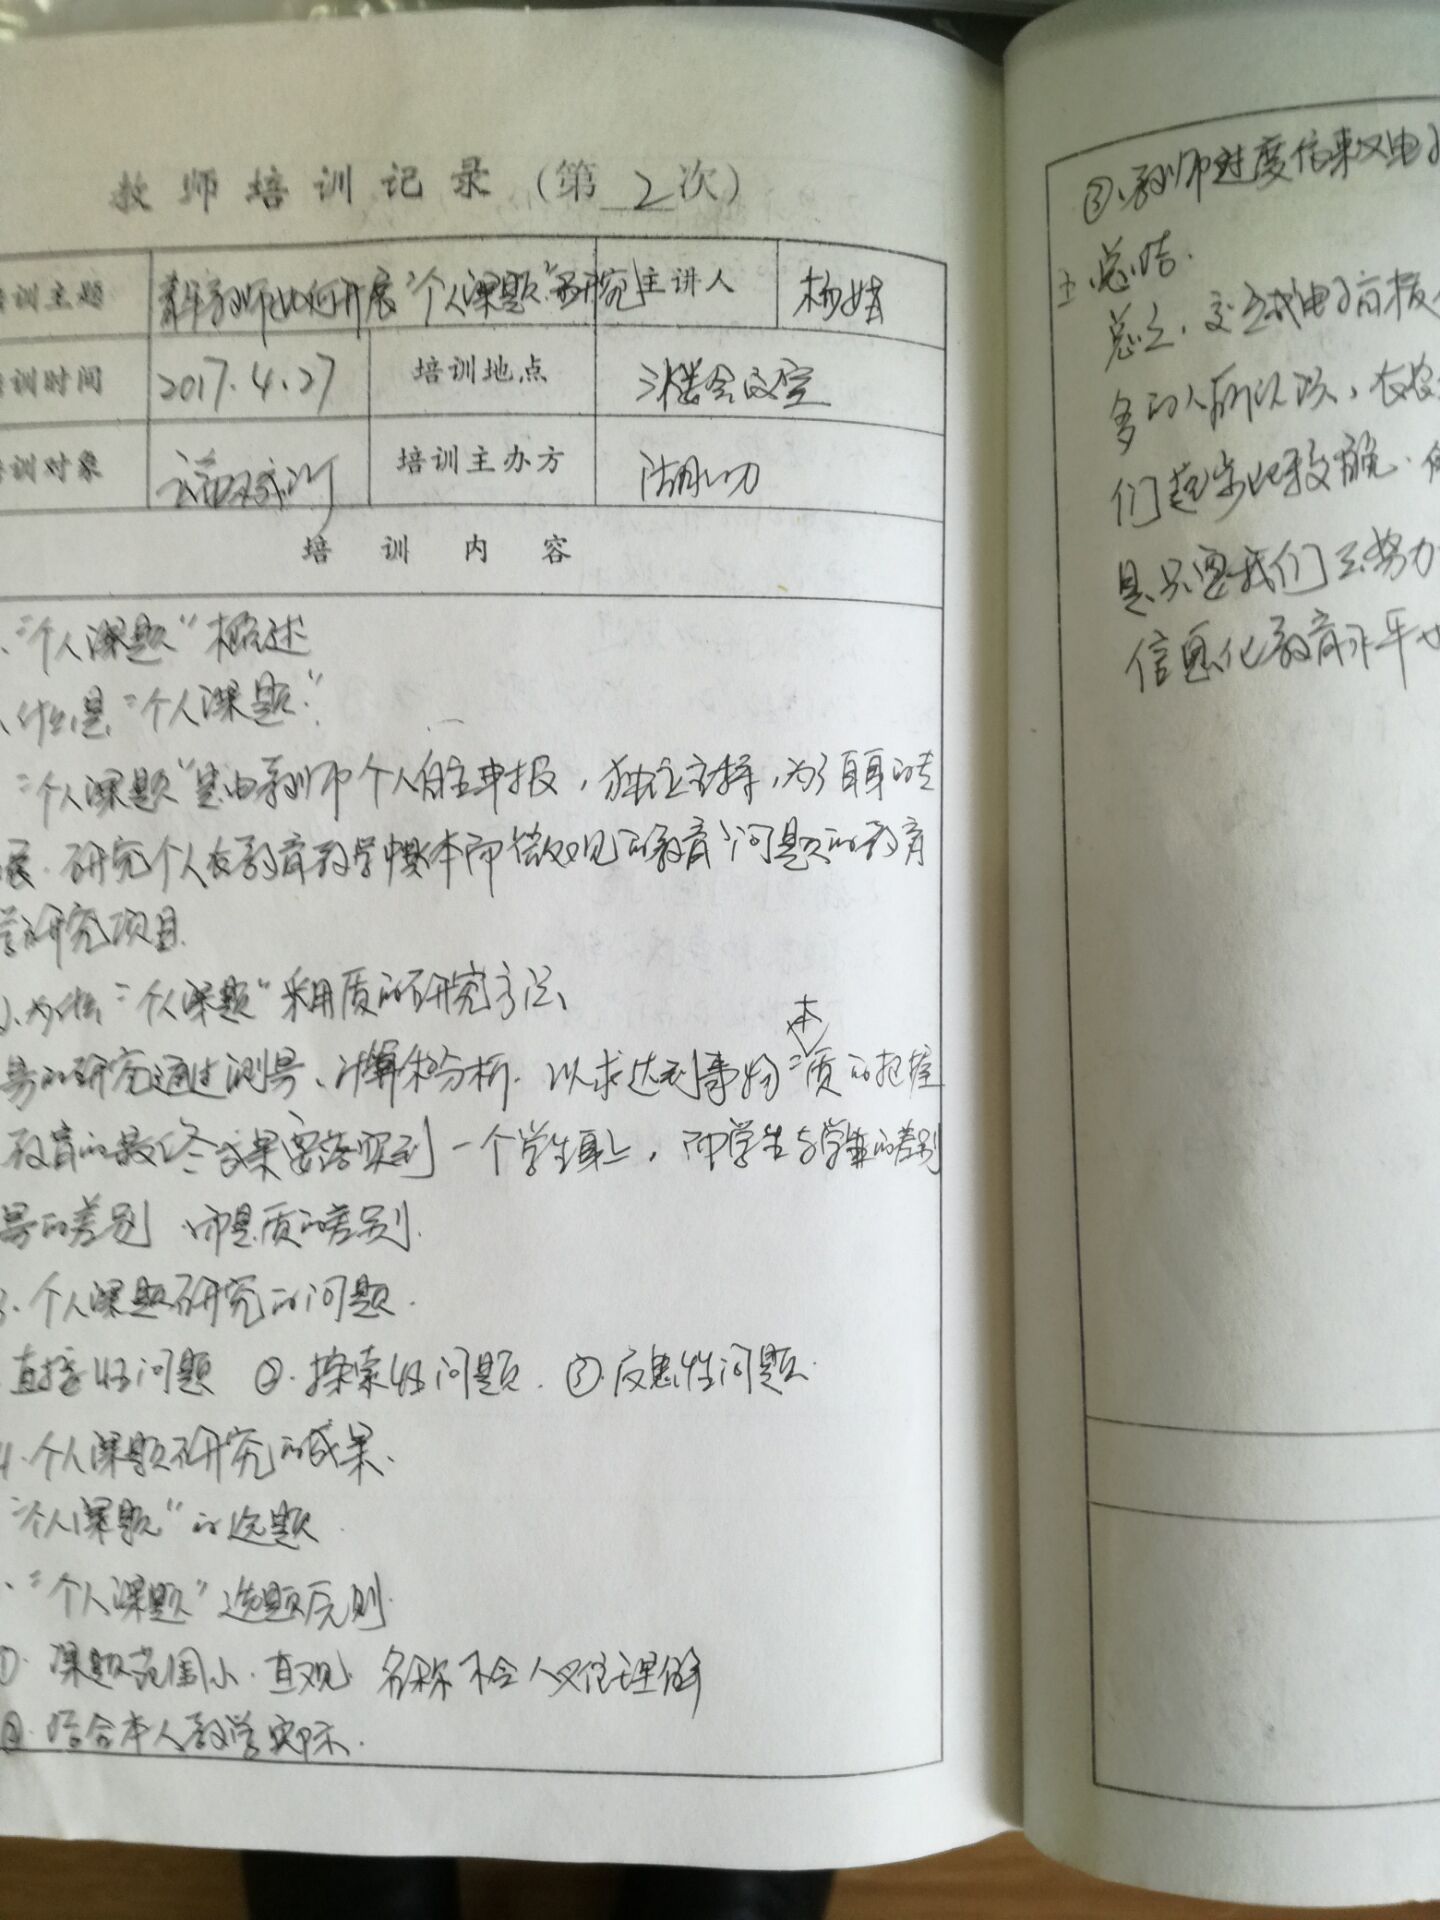 教师培训记录（第2次）
培训主题 青年教师如何开展"个人课题"研究 主讲人 杨
培训时间 2017.4.27 培训地点 三楼会议室
培训对象 培训主办方
培训内容
、"个人课题"概述
、什么是"个人课题".
"个人课题"是由教师个人自主申报,独立主持,为了自身的专
展.研究个人在教育教学中具体而微观的教育问题的教育
学研究项目.
2、为什么"个人课题"采用质的研究方法、
量的研究通过测量、计算和分析.以求达到事物"本质"的把握
教育的最终成果要落实到一个学生身上,而学生与学生的差别
量的差别 而是质的差别.
3、个人课题研究的问题.
直接性问题 ②.探索性问题.③.反思性问题.
4.个人课题研究的成果.
"个人课题"的选题.
、"个人课题"选题原则.
①.课题范围小.直观.名称不令人难理解
②.结合本人教学实际.
③、教师过度依赖电子
五.总结.
总之,交互式电子白板
多的人所认识,在农
们起步比较晚.但
是只要我们去努力
信息化教育水平也